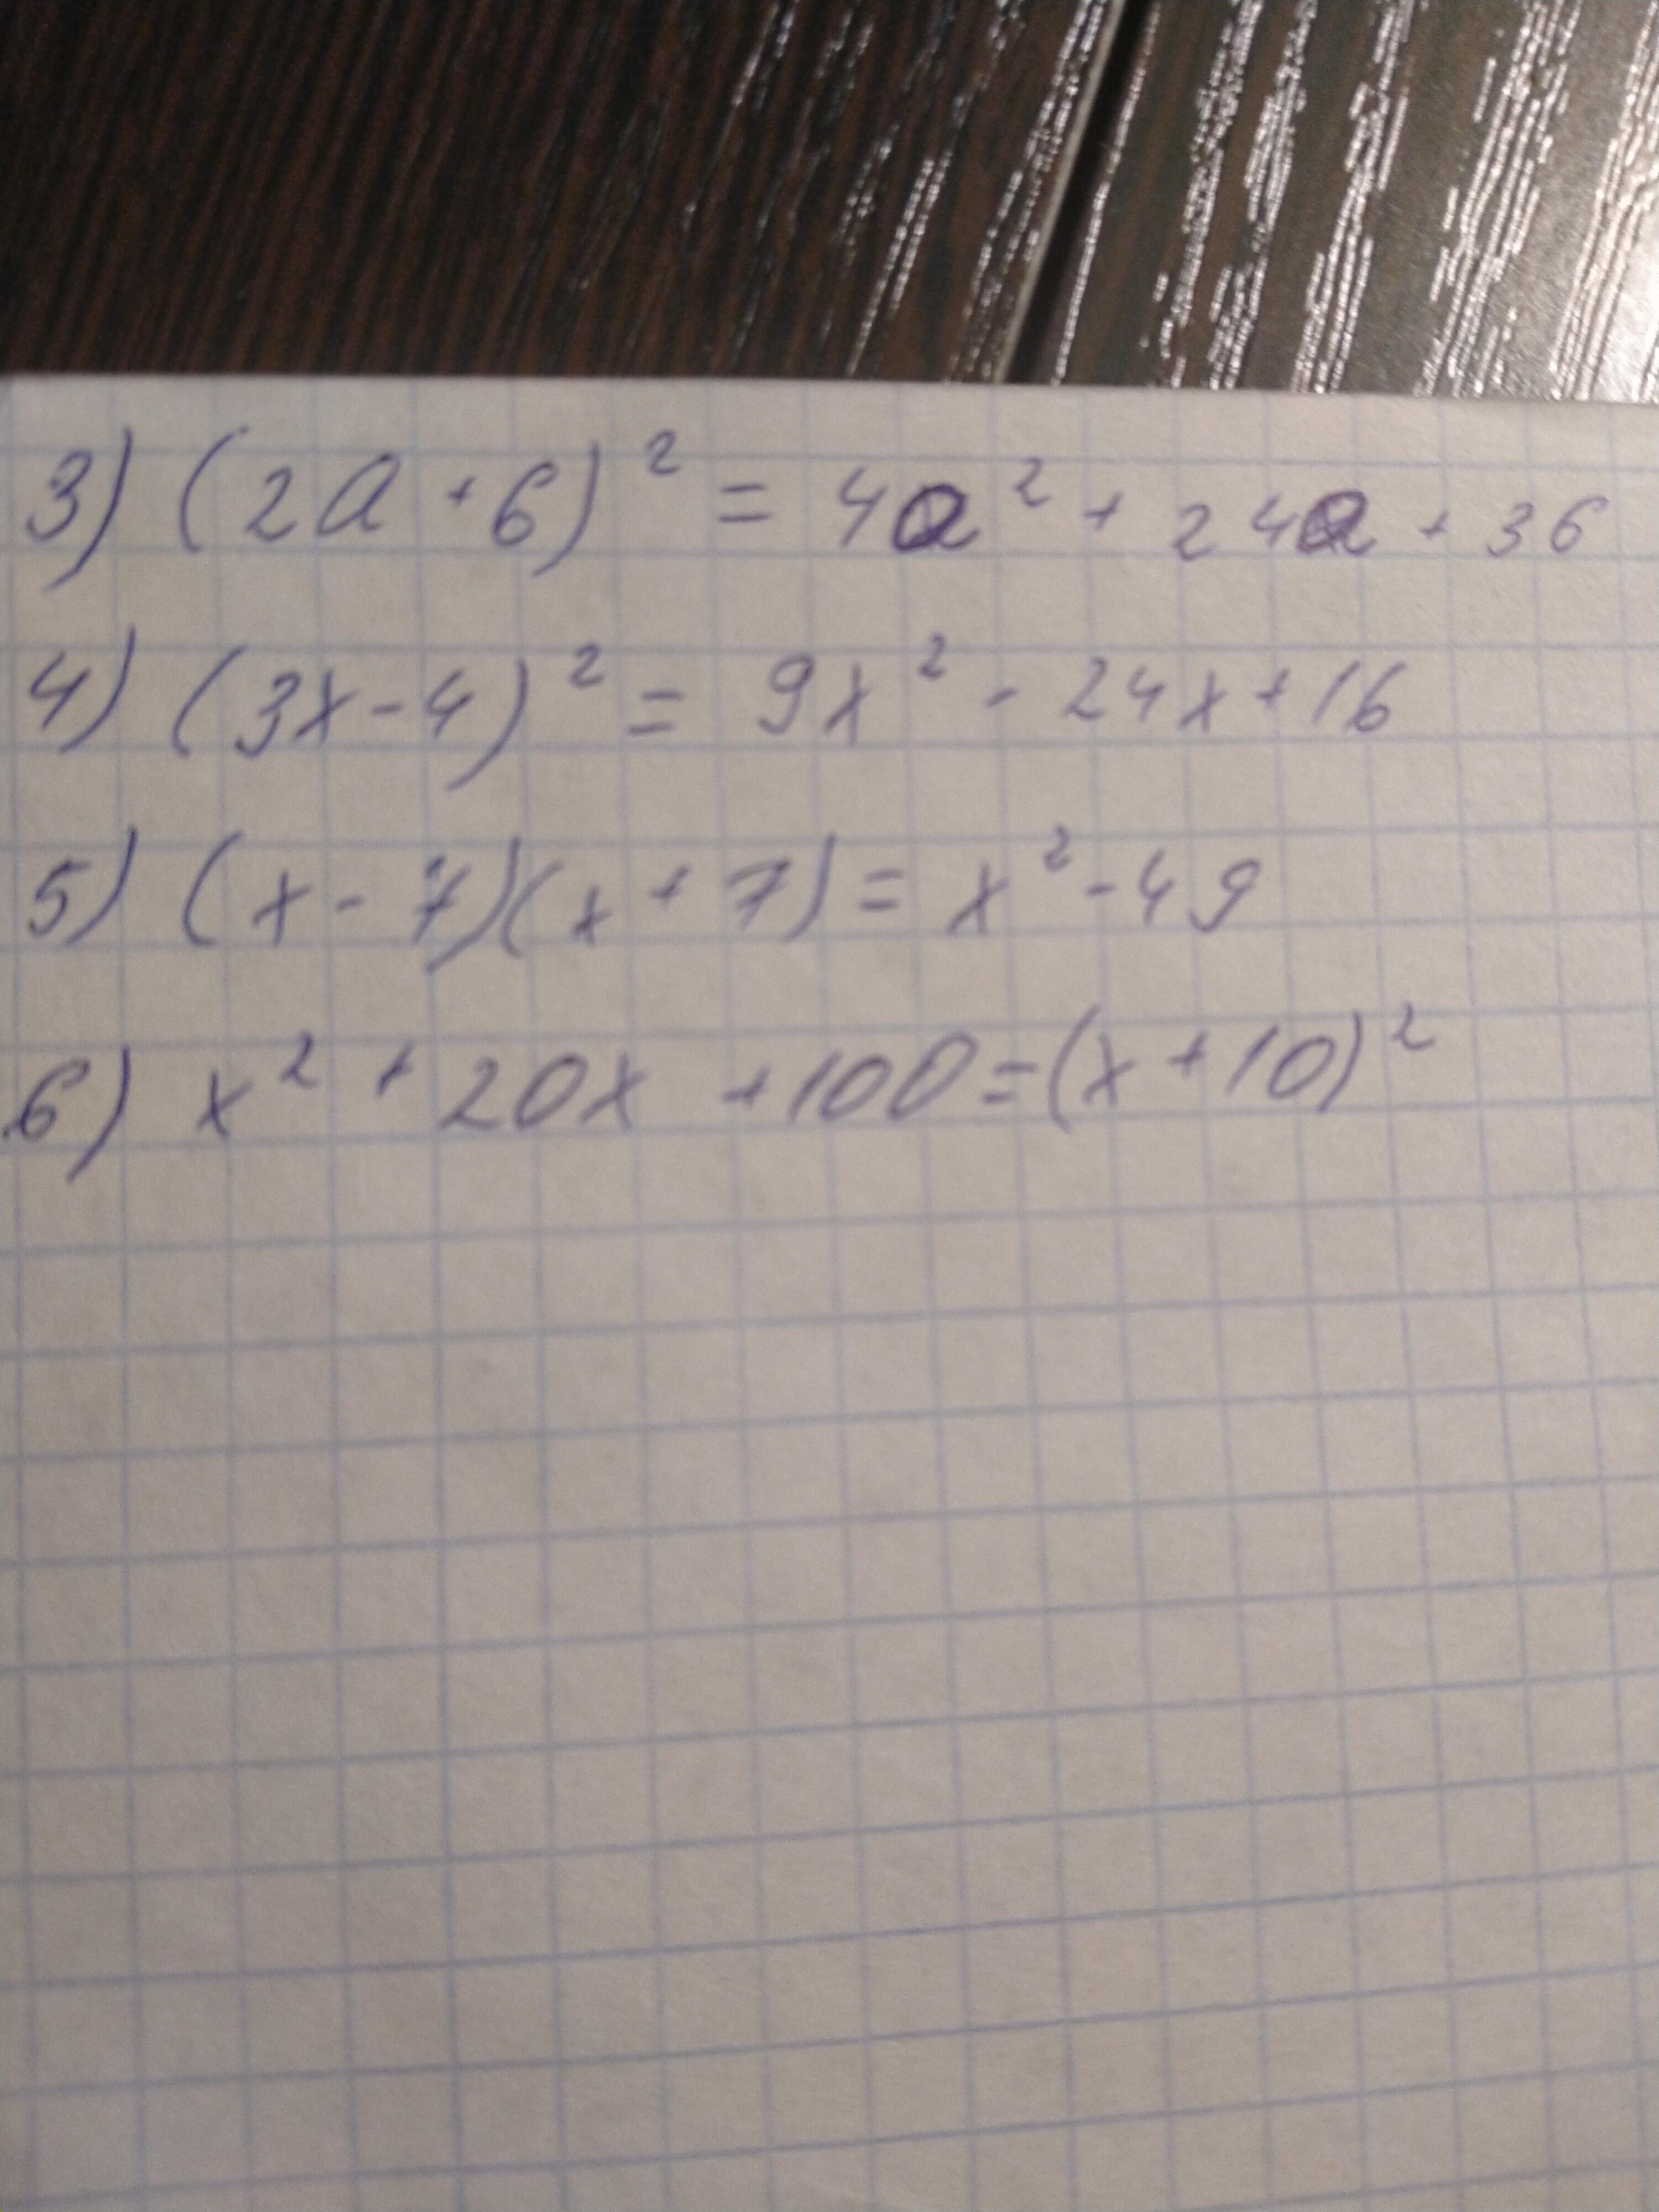 3) (2a + 6)² = 4a² + 24a + 36
4) (3x - 4)² = 9x² - 24x + 16
5) (x - 7)(x + 7) = x² - 49
6) x² + 20x + 100 = (x + 10)²